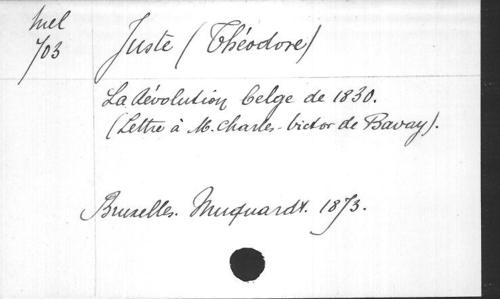 Mel
703
Juste (Théodore)
La Révolution belge de 1830.
(Lettre à M. Charles-Victor de Bavay).
Bruxelles. Muquardt. 1873.